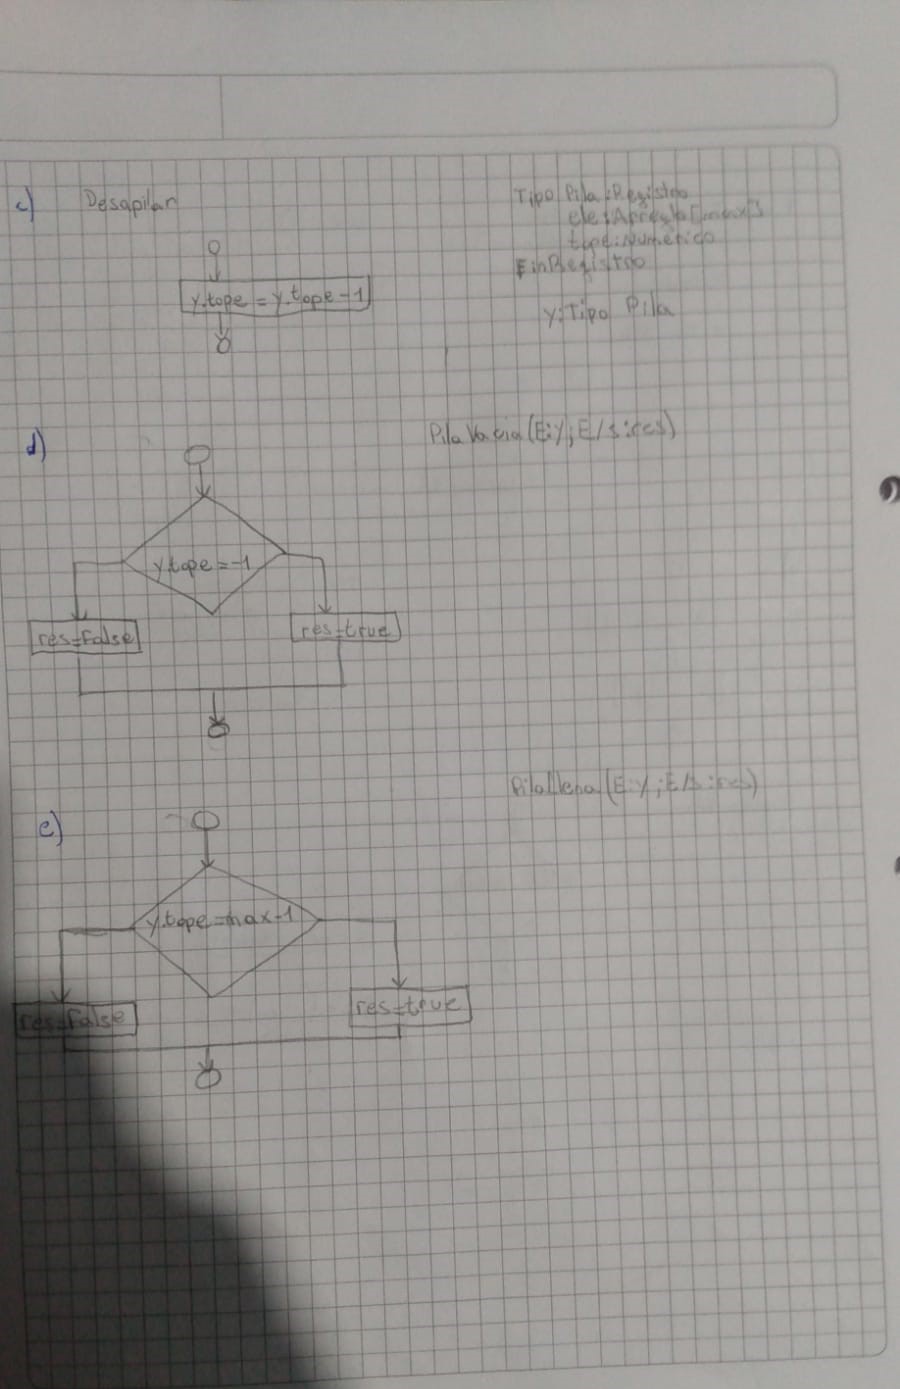 c) Desapilar
Tipo Pila:Registro
ele:Arreglo[max]
tope:Numerico
FinRegistro
y.tope = y.tope - 1
y:Tipo Pila
d)
PilaVacia(E:y; E/s:res)
y.tope = -1
res=False
res=true
PilaLlena(E:y; E/s:res)
e)
y.tope = max-1
res=False
res=true